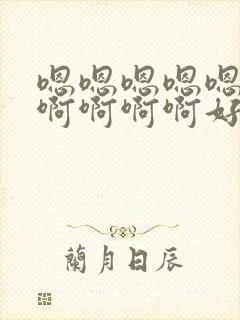 嗯嗯嗯嗯嗯
啊啊啊啊好
蘭月日辰